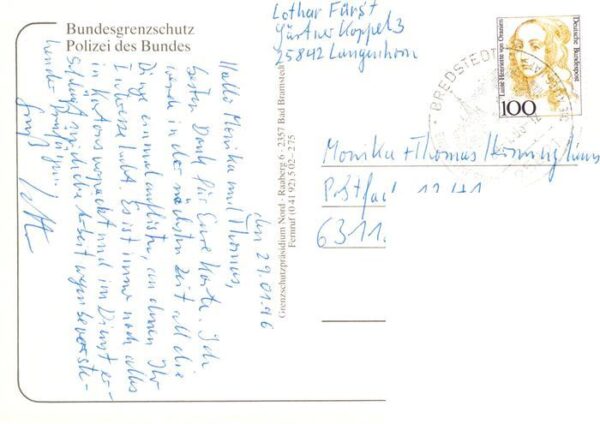 Bundesgrenzschutz
Polizei des Bundes
Lothar Fürst
Gärtner Koppel 3
25842 Langenhorn
BREDSTEDT
Luise Henriette von Oranien
Deutsche Bundespost
100
Monika + Thomas
Postfach
6311
Grenzschutzpräsidium Nord - Raaberg 6 - 2357 Bad Bramstedt
Fernruf (0 41 92) 5 02 – 2 75
den 29.01.96
Hallo Monika und Thomas,
besten Dank für Eure Karte. Ich
werde in der nächsten Zeit all die
Dinge einmal auflisten, an denen Ihr
Interesse habt. Es ist immer noch alles
in Kartons verpackt und im Dienst er-
schöpft reichliche Arbeit wegen bevorste-
hender
Gruß